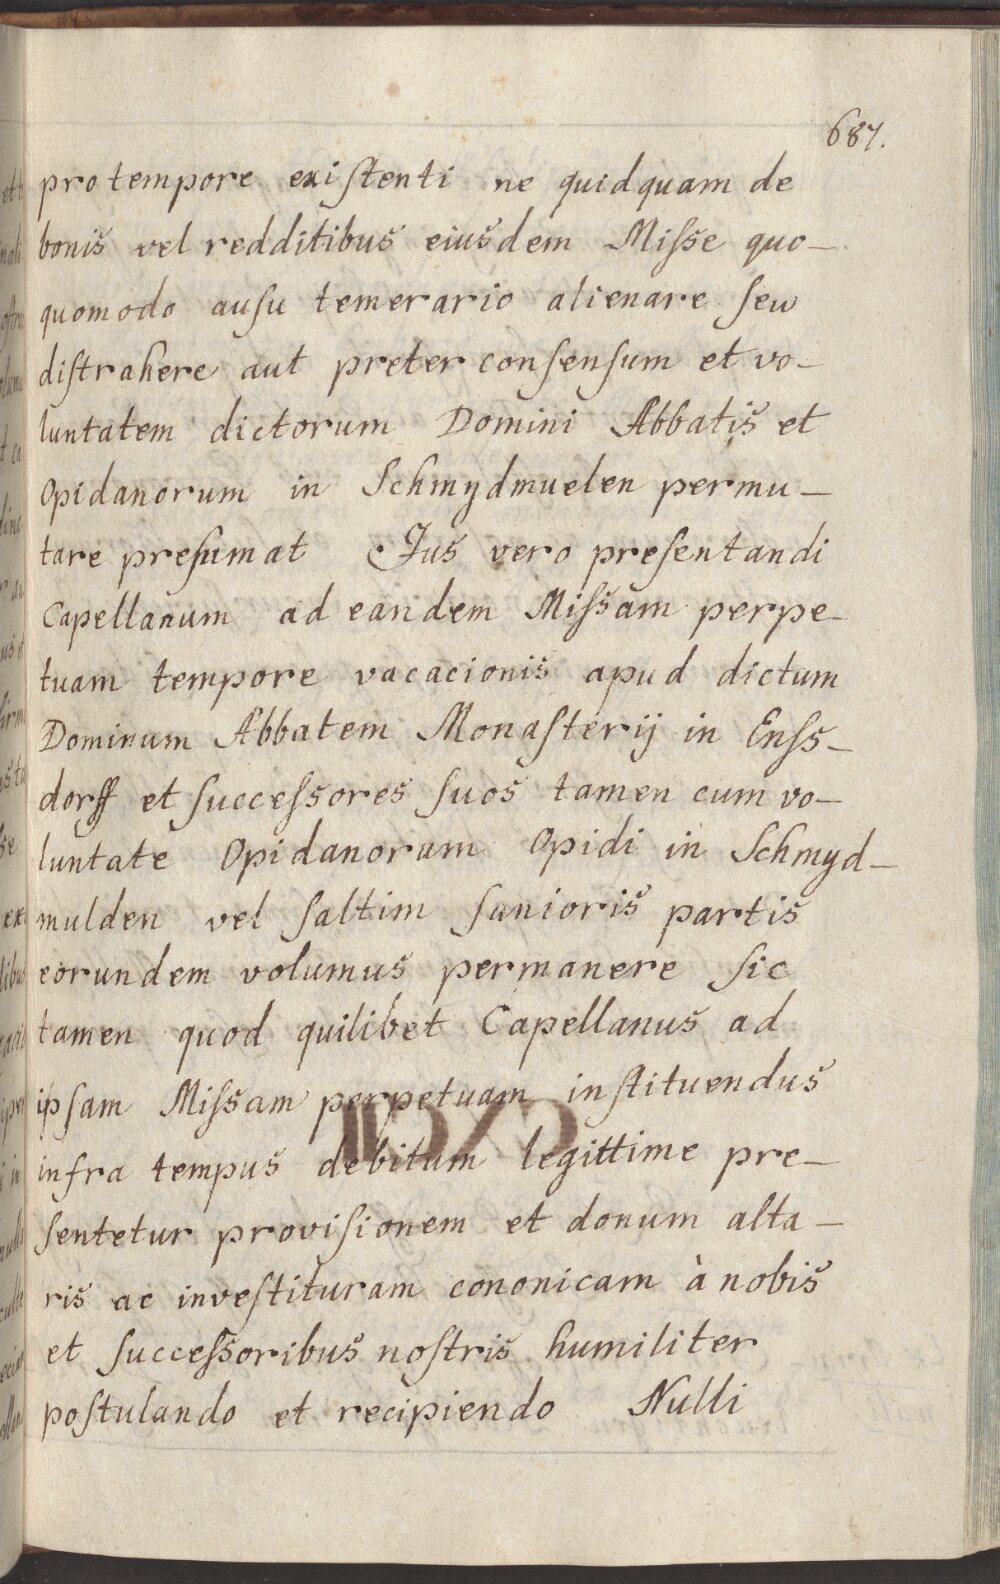 687.
pro tempore existenti ne quidquam de
bonis vel redditibus eiusdem Misse quo-
quomodo ausu temerario alienare seu
distrahere aut preter consensum et vo-
luntatem dictorum Domini Abbatis et
Opidanorum in Schmydmuelen permu-
tare presumat Jus vero presentandi
Capellanum ad eandem Missam perpe-
tuam tempore vacacionis apud dictum
Dominum Abbatem Monasterij in Enss-
dorff et successores suos tamen cum vo-
luntate Opidanorum Opidi in Schmyd-
mulden vel saltim sanioris partis
eorundem volumus permanere sic
tamen quod quilibet Capellanus ad
ipsam Missam perpetuam instituendus
infra tempus debitum legittime pre-
sentetur provisionem et donum alta-
ris ac investituram cononicam à nobis
et successoribus nostris humiliter
postulando et recipiendo Nulli